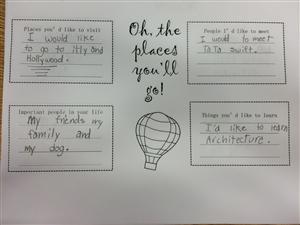 Places you'd like to visit
I would like
to go to itly and
Hollywood.
Oh, the
places
you'll
go!
People I'd like to meet
I would to meet
TaTa swift.
Important people in your life
My friends my
family and
my dog.
Things you'd like to learn
I'd like to learn
Architecture.